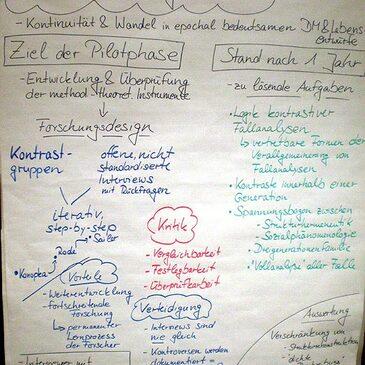 - Kontinuität & Wandel in epochal bedeutsamen DM & Lebens-
entwürfe
Ziel der Pilotphase
- Entwicklung & Überprüfung
der method-theoret. Instrumente
Forschungsdesign
Kontrast-
gruppen
offene, nicht
standardisierte
Interviews
mit Rückfragen
iterativ,
step-by-step
Sailer
Rode
Konopka
Vorteile
- Weiterentwicklung
fortschreitende
Forschung
↳ permanenter
Lernprozess
der Forscher
- Interviewer mit
Kritik
- Vergleichbarkeit
- Festlegbarkeit
- Überprüfbarkeit
Verteidigung
- Interviews sind
nie gleich
- Kontroversen werden
dokumentiert
Stand nach 1 Jahr
- zu lösende Aufgaben
• Logik kontrastiver
Fallanalysen
↳ vertretbare Formen der
Verallgemeinerung von
Fallanalysen
• Kontraste innerhalb einer
Generation
• Spannungsbogen zwischen
- Strukturhermeneutik
- Sozialphänomenologie
• Dreigenerationenfamilie
• "Vollanalyse" aller Fälle
Auswertung
Verschränkung von
"dichte